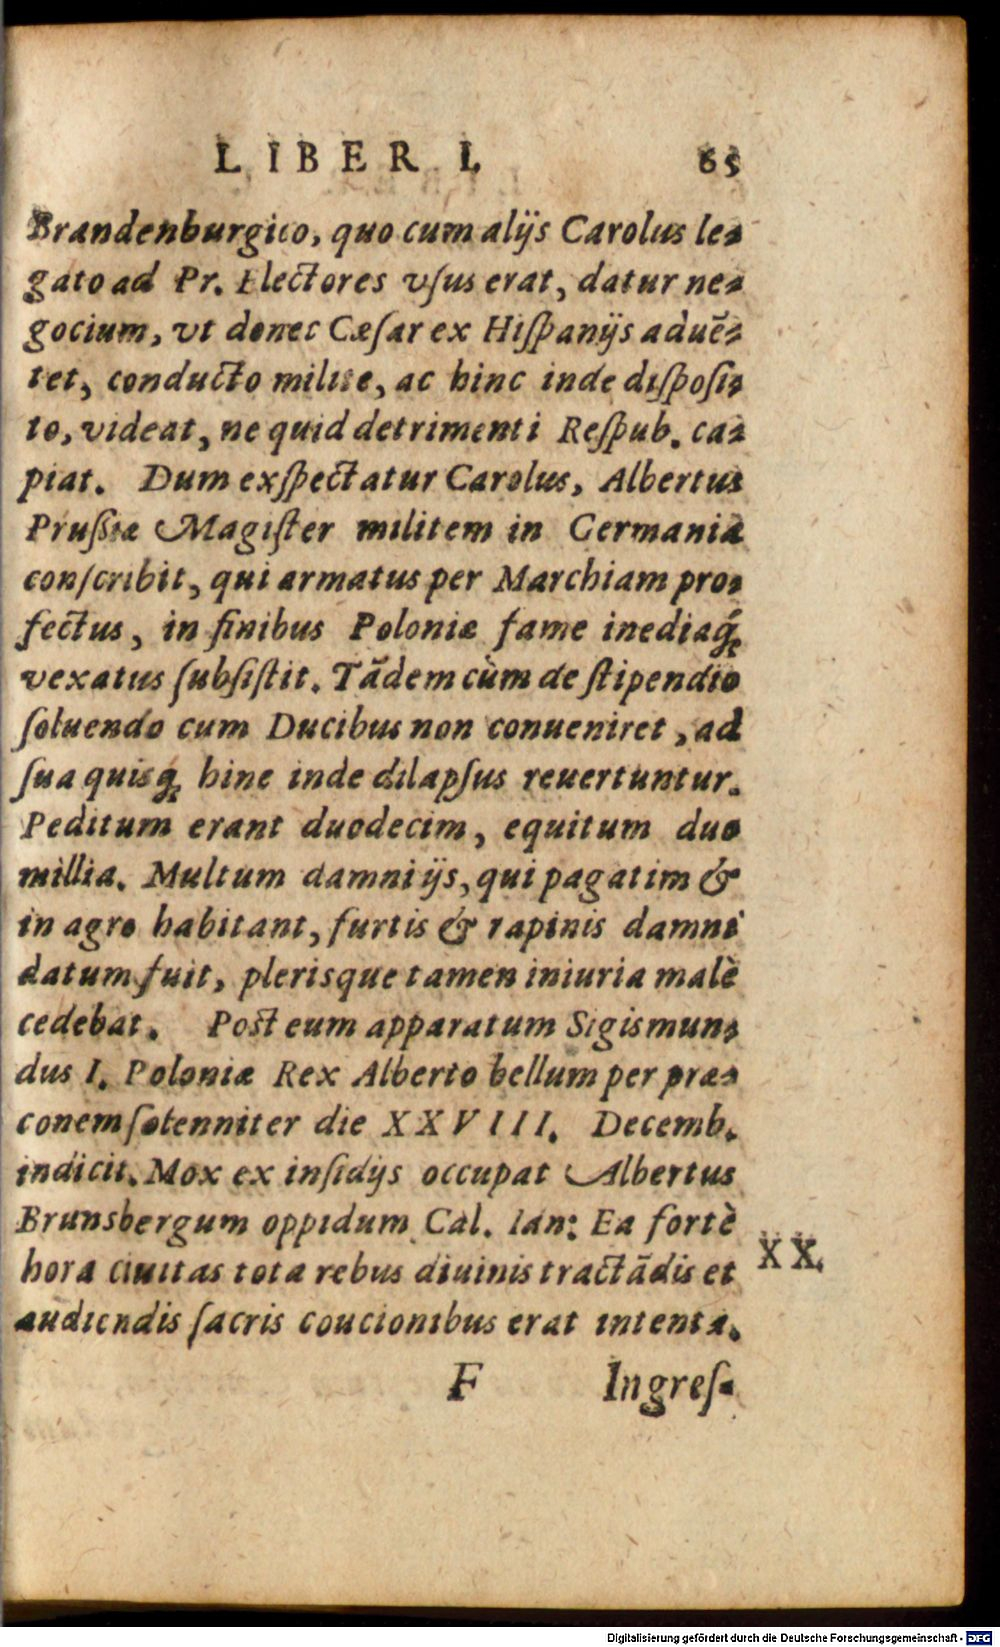 LIBER I. 65
Brandenburgico, quo cum alijs Carolus le-
gato ad Pr. Electores vſus erat, datur ne-
gocium, vt donec Cæſar ex Hiſpanijs aduē-
tet, conducto milite, ac hinc inde diſpoſi-
to, videat, ne quid detrimenti Reſpub. ca-
piat. Dum exſpectatur Carolus, Albertus
Pruſsiæ Magiſter militem in Germania
conſcribit, qui armatus per Marchiam pro-
fectus, in finibus Poloniæ fame inediaq́;
vexatus ſubſiſtit. Tādem cùm de ſtipendio
ſoluendo cum Ducibus non conueniret, ad
ſua quisq; hinc inde dilapſus reuertuntur.
Peditum erant duodecim, equitum duo
millia. Multum damni ijs, qui pagatim &
in agro habitant, furtis & rapinis damni
datum fuit, plerisque tamen iniuria malè
cedebat. Poſt eum apparatum Sigismun-
dus I. Poloniæ Rex Alberto bellum per præ-
conem ſolenniter die XXVIII. Decemb.
indicit. Mox ex inſidijs occupat Albertus
Brunsbergum oppidum Cal. Ian: Ea fortè
hora ciuitas tota rebus diuinis tractādis et
audiendis ſacris coucionibus erat intenta.
XX.
F Ingreſ-
Digitalisierung gefördert durch die Deutsche Forschungsgemeinschaft - DFG